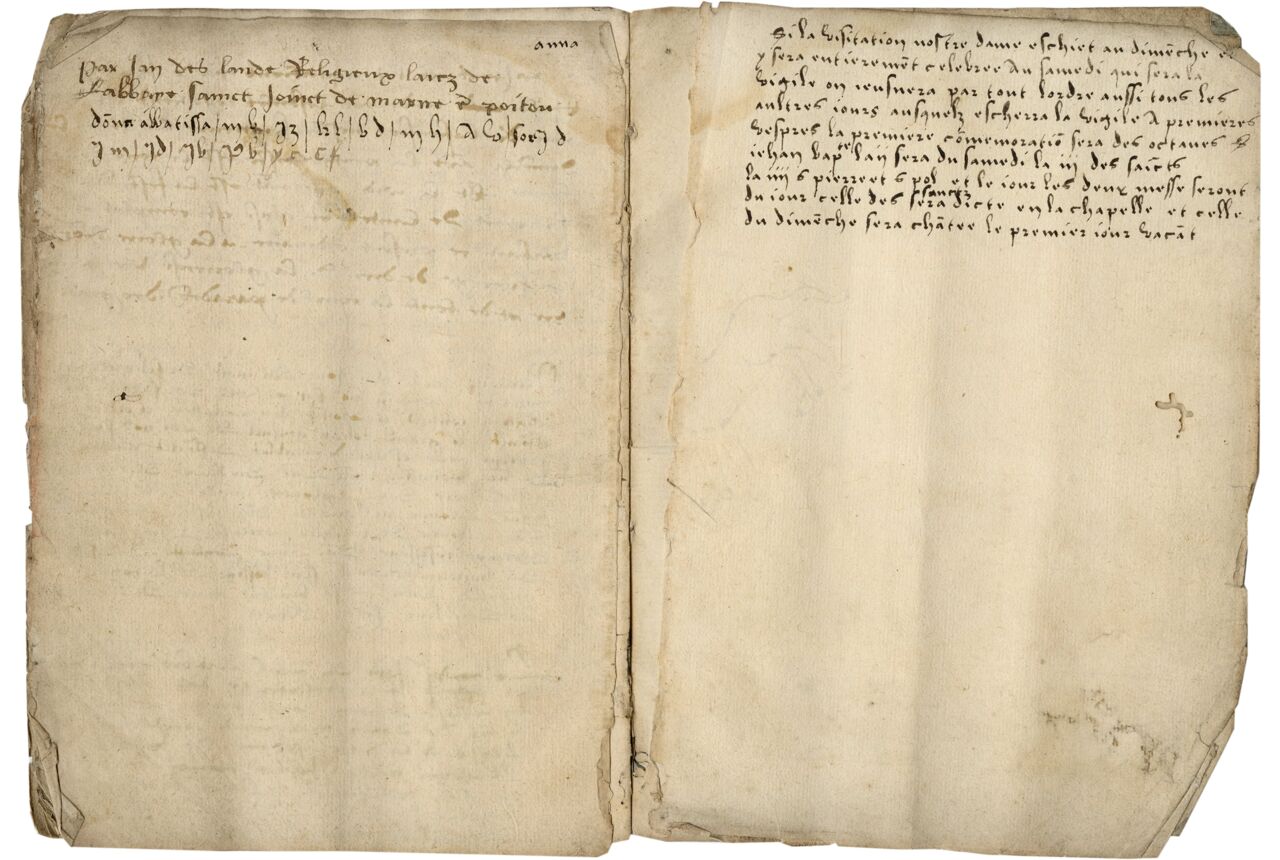 anna
Par Jan des lande Religieux laiez de
Labbaye sainct Joinct de marne ē poitou
dōna abbatissa / m k / J z / k l / b d / m h / A b / sorz d
J m / J d / J b / P b / y c · c f
Si la visitation nostre dame eschiet au dimēche el
y sera entieremēt celebree Au samedi qui sera la
vigile on ieusnera par tout lordre aussi tous les
aultres iours ausquelz escherra la vigile A premieres
vespres la premiere cōmemoratiō sera des octaues s
iehan bap te la ii sera du samedi la iii des saīcts
la iiii s pierre et s pol et le iour les deux messe seront
du iour celle des sanctz sera dicte en la chapelle et celle
du dimēche sera chātee le premier iour vacāt